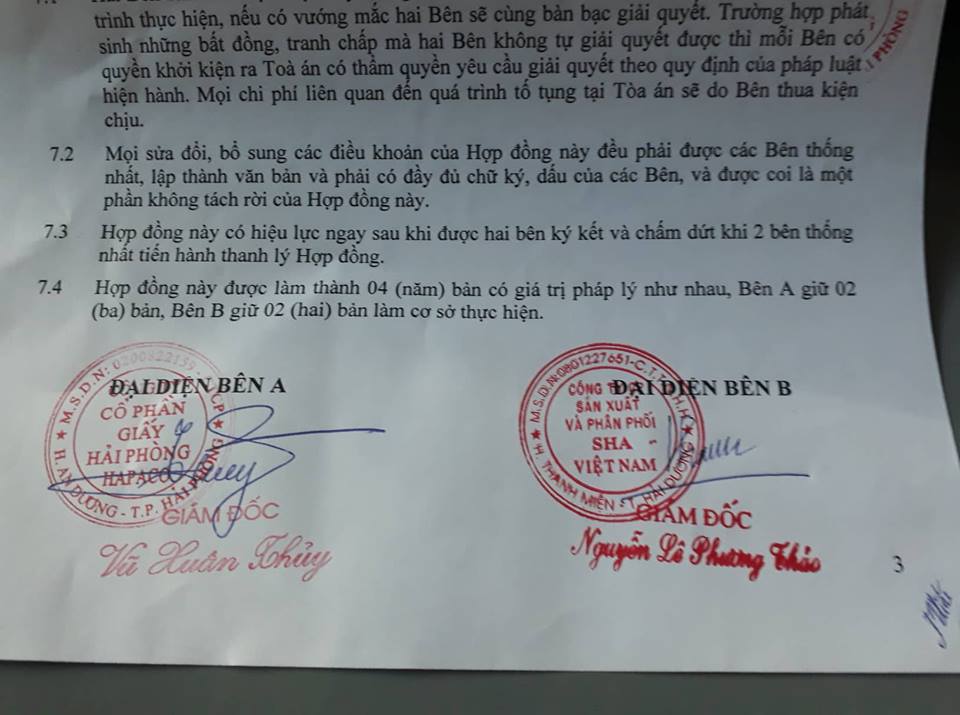 trình thực hiện, nếu có vướng mắc hai Bên sẽ cùng bàn bạc giải quyết. Trường hợp phát
sinh những bất đồng, tranh chấp mà hai Bên không tự giải quyết được thì mỗi Bên có
quyền khởi kiện ra Toà án có thẩm quyền yêu cầu giải quyết theo quy định của pháp luật
hiện hành. Mọi chi phí liên quan đến quá trình tố tụng tại Tòa án sẽ do Bên thua kiện
chịu.
PHÒNG
7.2 Mọi sửa đổi, bổ sung các điều khoản của Hợp đồng này đều phải được các Bên thống
nhất, lập thành văn bản và phải có đầy đủ chữ ký, dấu của các Bên, và được coi là một
phần không tách rời của Hợp đồng này.
7.3 Hợp đồng này có hiệu lực ngay sau khi được hai bên ký kết và chấm dứt khi 2 bên thống
nhất tiến hành thanh lý Hợp đồng.
7.4 Hợp đồng này được làm thành 04 (năm) bản có giá trị pháp lý như nhau, Bên A giữ 02
(ba) bản, Bên B giữ 02 (hai) bản làm cơ sở thực hiện.
ĐẠI DIỆN BÊN A
M.S.D.N: 0200822159
CỔ PHẦN
GIẤY
HẢI PHÒNG
HAPACO
H. AN DƯƠNG - T.P. HẢI PHÒNG
GIÁM ĐỐC
Vũ Xuân Thủy
ĐẠI DIỆN BÊN B
M.S.D.N:0801227651-C.T.T.N.H.H
CÔNG
SẢN XUẤT
VÀ PHÂN PHỐI
SHA
VIỆT NAM
H. THANH MIỆN - T. HẢI DƯƠNG
GIÁM ĐỐC
Nguyễn Lê Phương Thảo
3